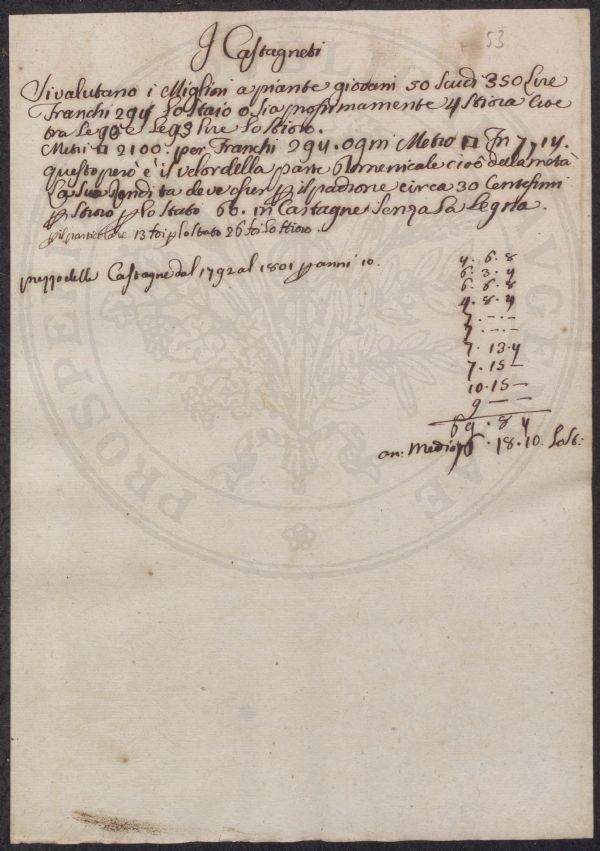 53
I Castagneti
Si valutano i Migliori a piante giovani 50 Scudi 350 Lire
Franchi 294 lo Staio o sia prossimamente 4 Stiora cioe
tra le 90 e le 93 lire lo stioro.
Metri □ 2100. per Franchi 294. ogni Metro □ Fn 7,14.
questo però è il valor della parte Domenicale cioè della metà
La sua rendita deve esser p il padrone circa 30 Centesimi
p stioro p lo stato 60. in Castagne senza la Legna.
p il particolare 13 p lo stato 26 lo stioro.
prezzo delle Castagne dal 1792 al 1801 p anni 10.
4. 6. 8
6. 3. 4
6. 6. 8
4. 8. 4
7. -. -
7. -. -
7. 13. 4
7. 15 -
10. 15 -
9 - -
69. 8 4
an: Medio 6. 18. 10. lo St:
PROSPER